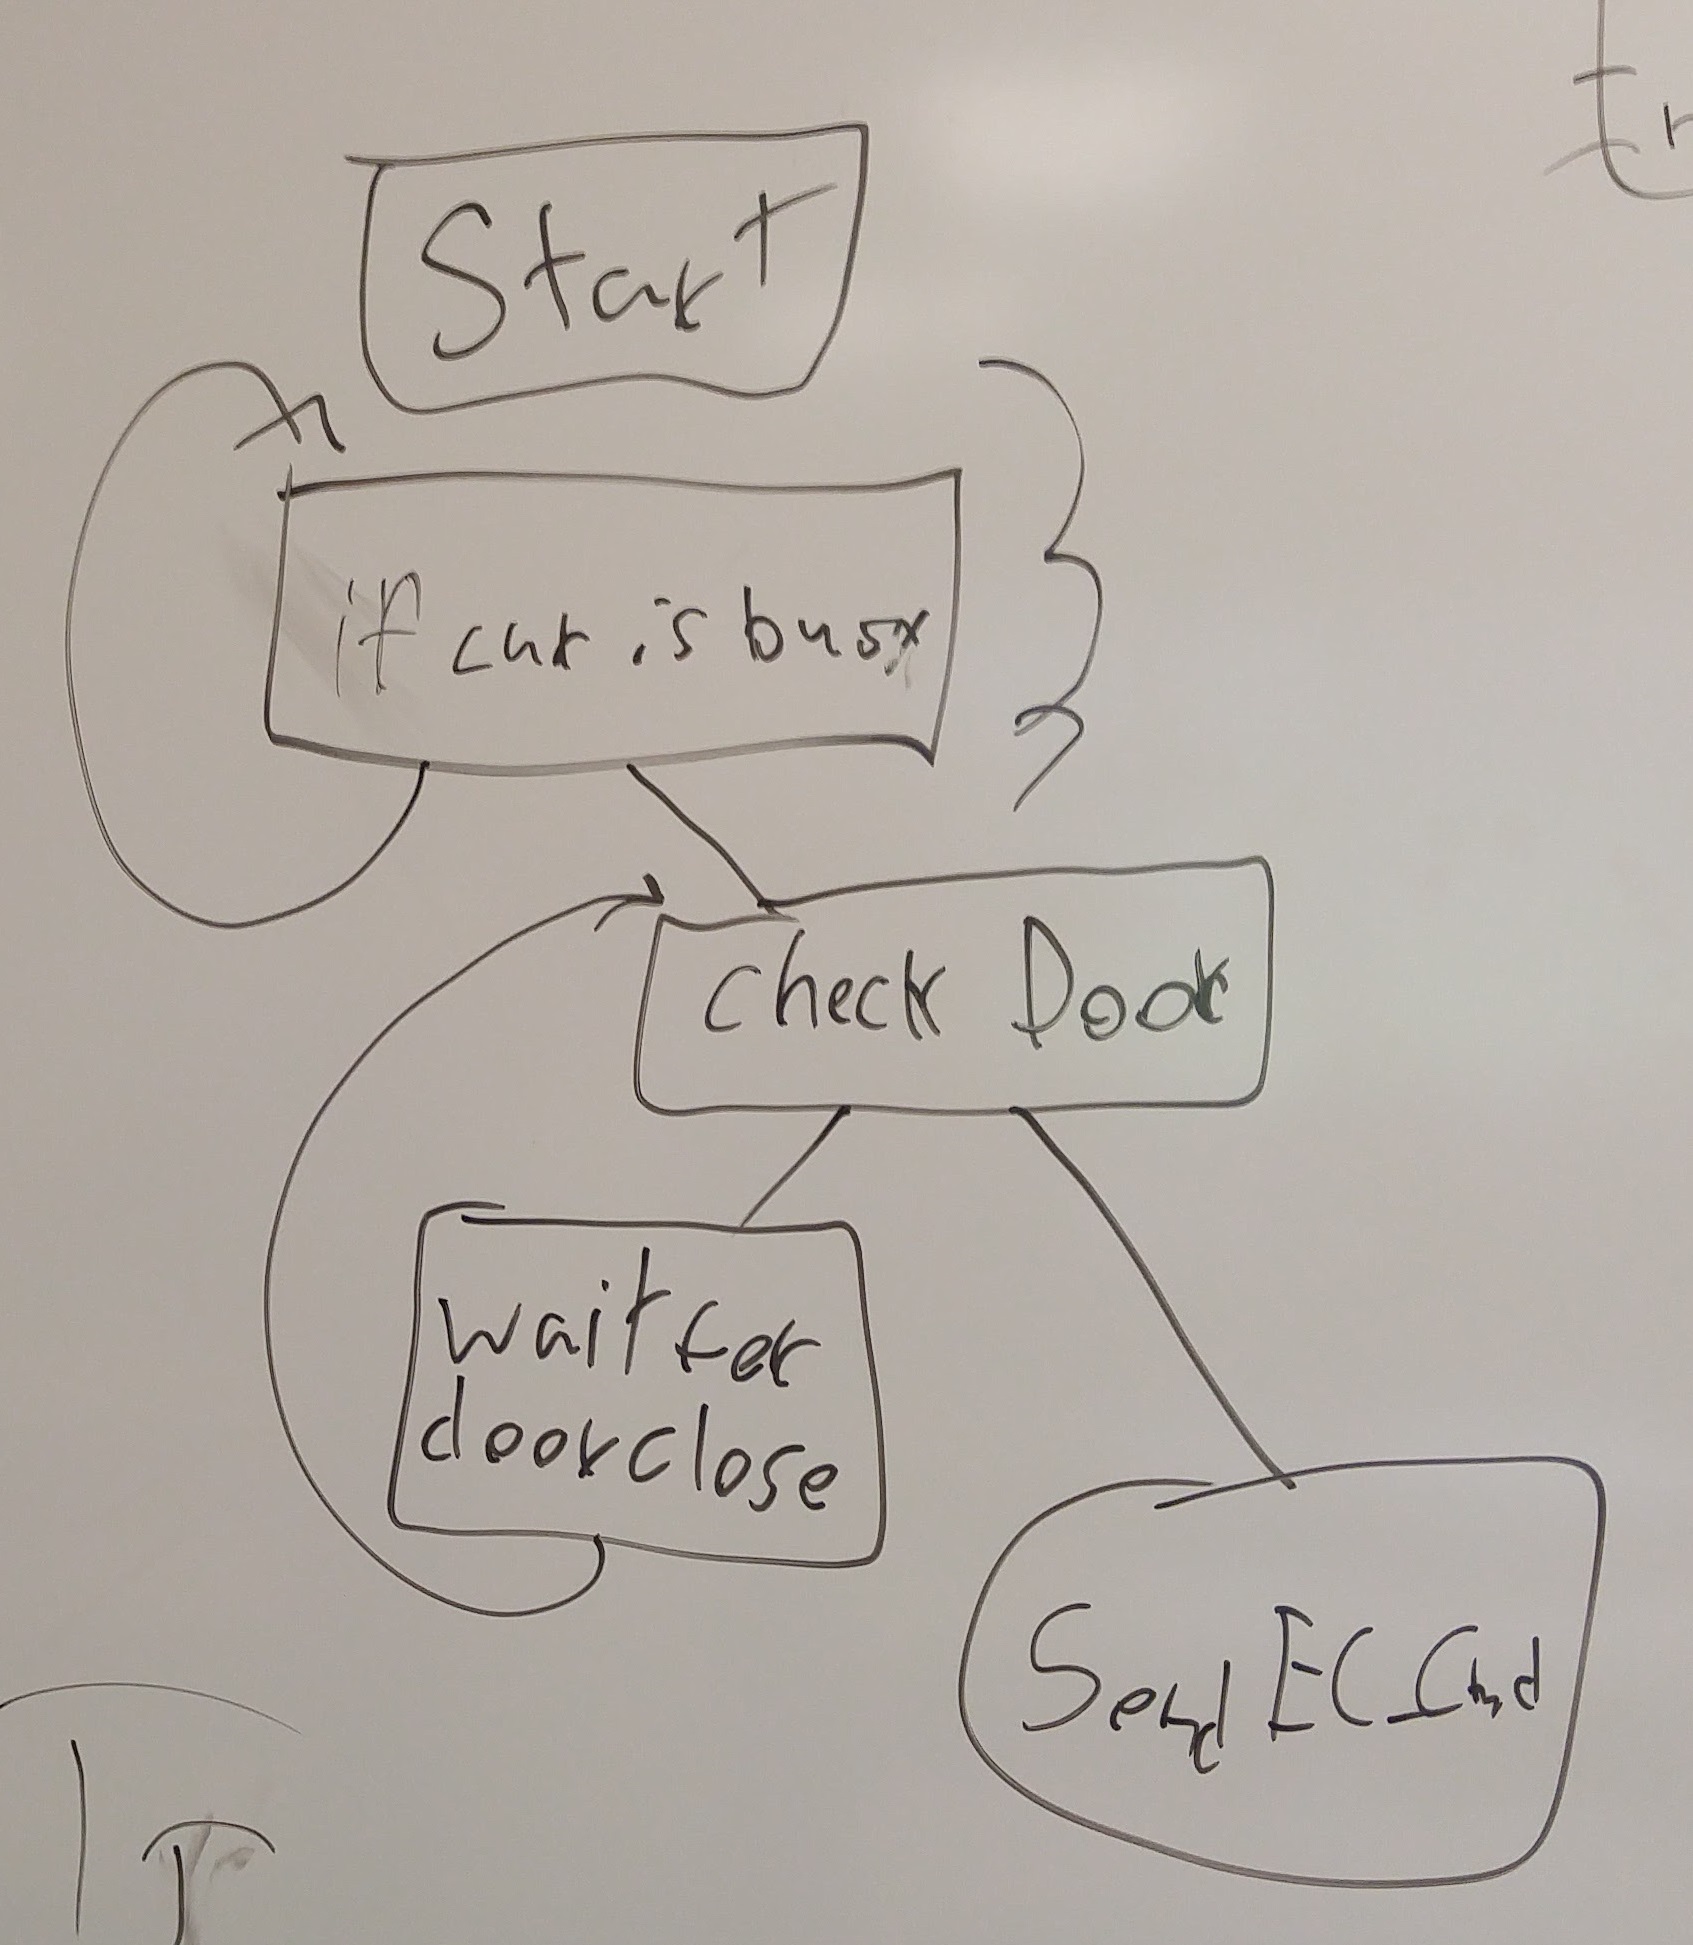 Start
if car is busy
check Door
wait for
door close
Send EC_Cmd